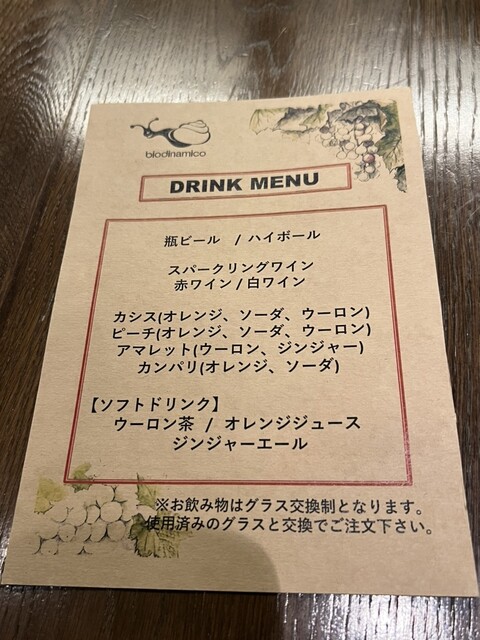 biodinamico
DRINK MENU
瓶ビール / ハイボール
スパークリングワイン
赤ワイン / 白ワイン
カシス(オレンジ、ソーダ、ウーロン)
ピーチ(オレンジ、ソーダ、ウーロン)
アマレット(ウーロン、ジンジャー)
カンパリ(オレンジ、ソーダ)
【ソフトドリンク】
ウーロン茶 / オレンジジュース
ジンジャーエール
※お飲み物はグラス交換制となります。
使用済みのグラスと交換でご注文下さい。